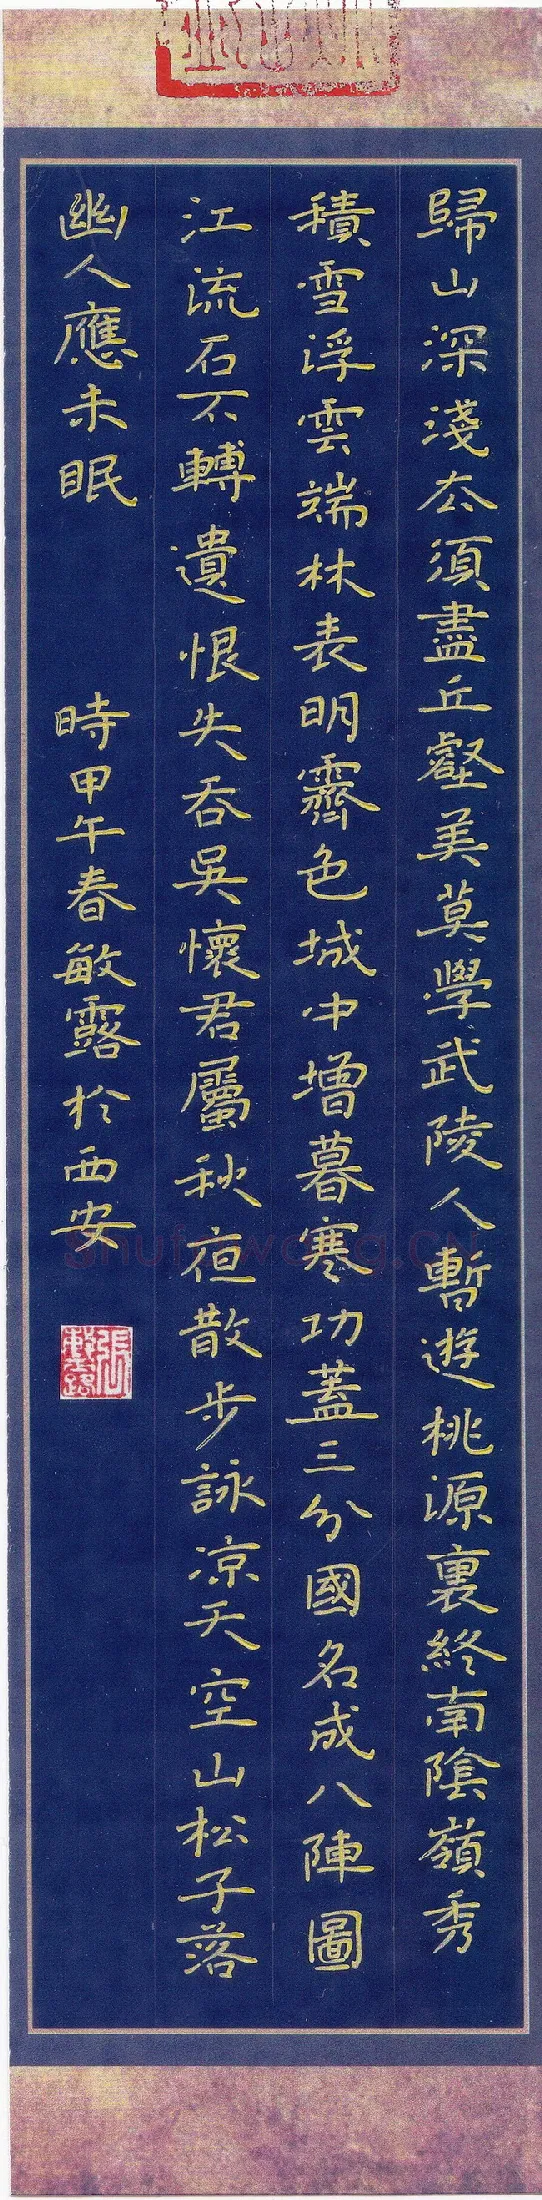 歸山深淺去須盡丘壑美莫學武陵人暫遊桃源裏終南陰嶺秀
積雪浮雲端林表明霽色城中增暮寒功蓋三分國名成八陣圖
江流石不轉遺恨失吞吳懷君屬秋夜散步詠涼天空山松子落
幽人應未眠
時甲午春敏露於西安